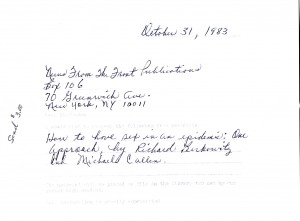 October 31, 1983
News From The Front Publications
Box 106
70 Greenwich Ave.
New York, NY 10011
Send $3.00
How to have sex in an epidemic: One
Approach, by Richard Berkowitz
and Michael Callen.